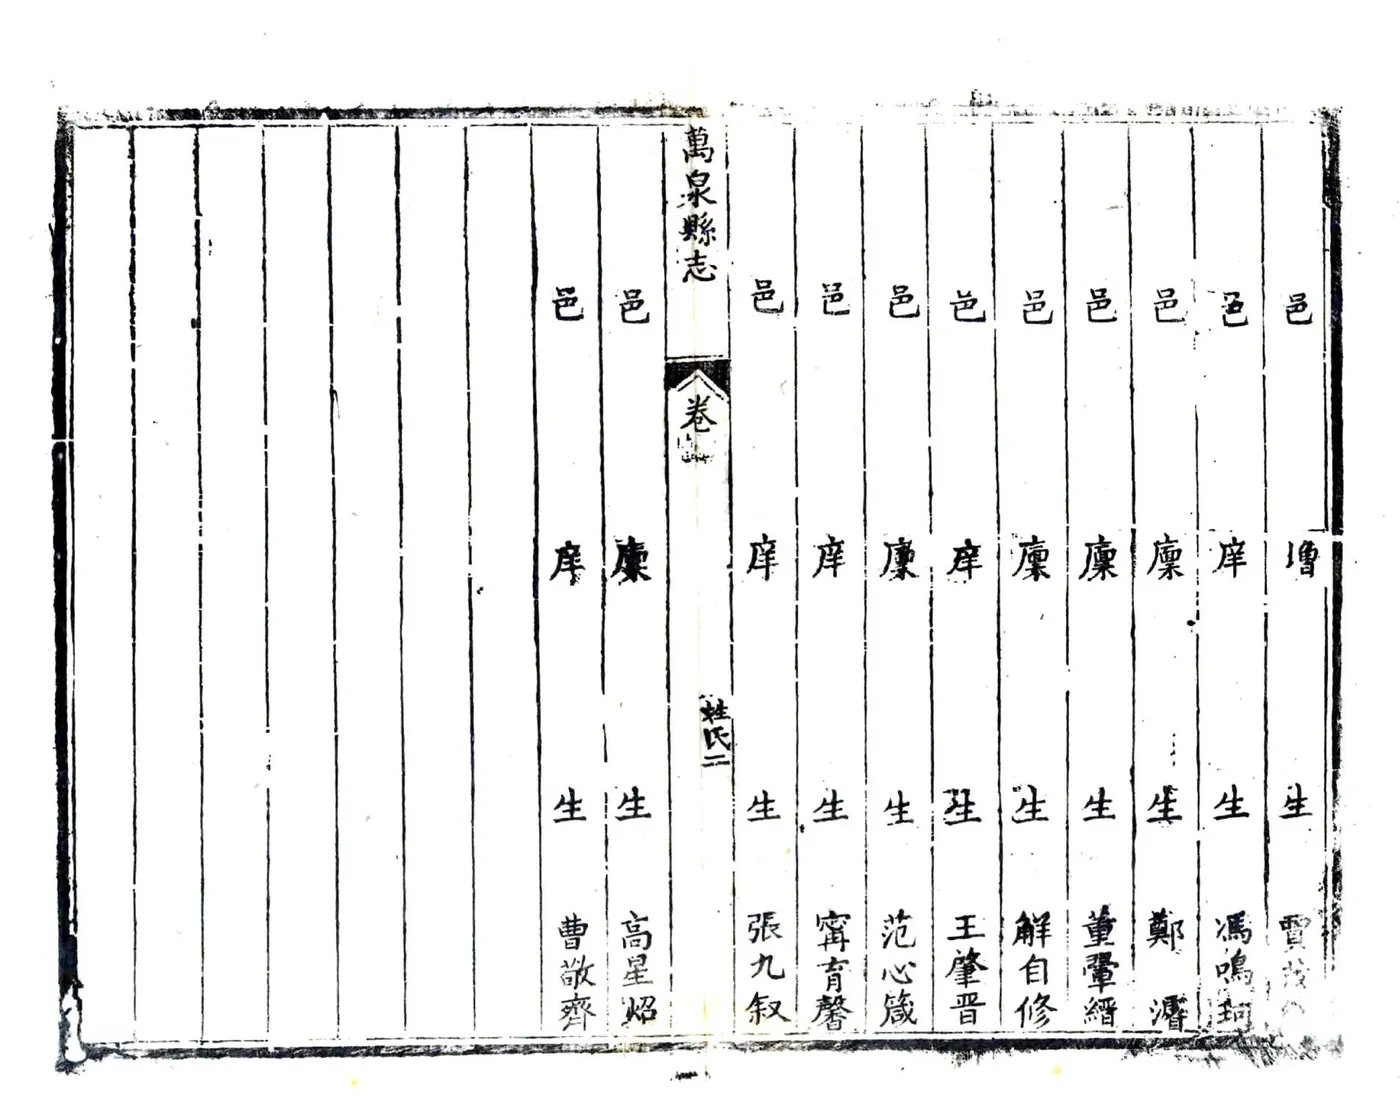 邑增生賈茂
邑庠生馮鳴珂
邑廩生鄭濬
邑廩生董翬縉
邑廩生解自修
邑庠生王肇晋
邑廩生范心箴
邑庠生甯育馨
邑庠生張九叙
萬泉縣志
卷
姓氏二
邑廩生高星炤
邑庠生曹敬齊